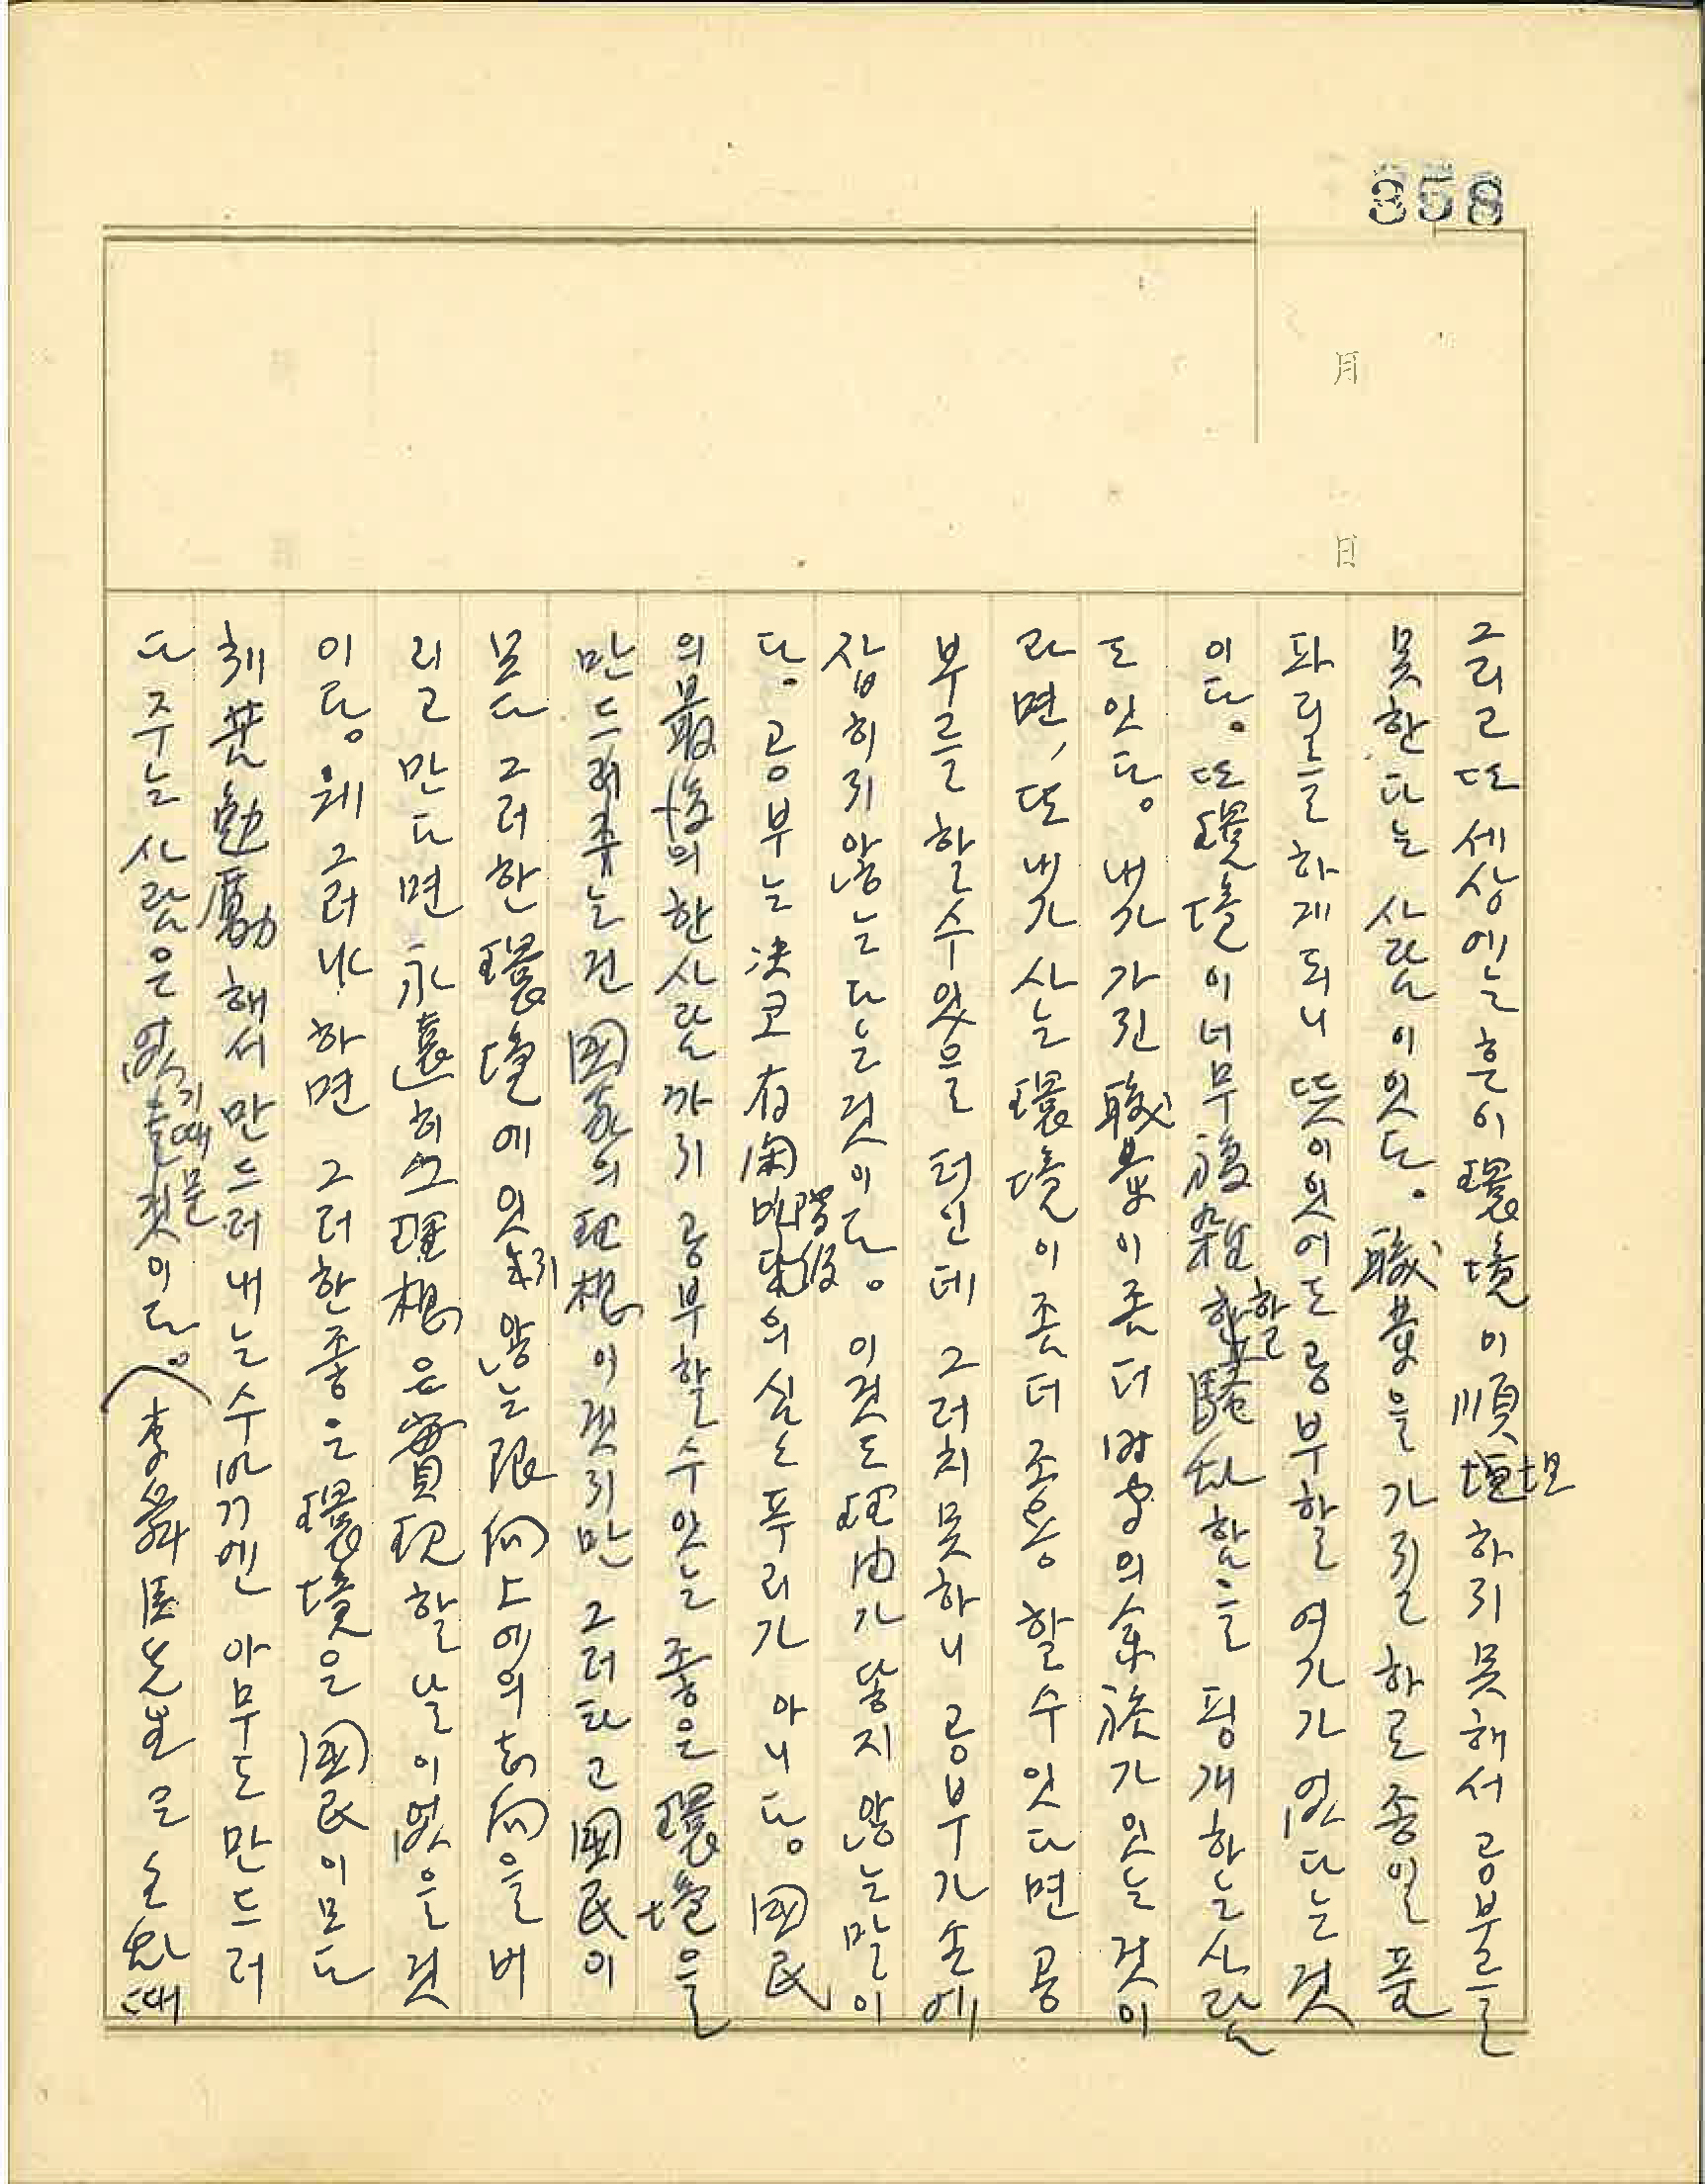 358
月
日
그리고 또 세상에는 흔이 環境이 順坦하지 못해서 공부를
못한다는 사람이 잇다. 職業을 가질 하로종일 품
파리를 하게 되니 뜻이 잇어도 공부할 여가가 없다는 것
이다. 또 環境이 너무 複雜할 騷亂함을 핑개하는 사람
도 잇다. 내가 가진 職業이 좀 더 의 余裕가 잇는 것이
라면, 또 내가 사는 環境이 좀 더 조용할 수 잇다면 공
부를 할 수 잇을 터인데 그러치 못하니 공부가 손에
잡히지 않는다는 것이다. 이것도 理由가 닿지 않는 말이
다. 공부는 決코 有閑階級의 심심푸리가 아니다. 國民
의 最後의 한 사람까지 공부할 수 잇는 좋은 環境을
만드러주는 건 國家의 理想이겟지만 그러타고 國民이
모다 그러한 環境에 잇지 않는 限 向上에의 志向을 버
리고 만다면 永遠히 그 理想은 實現할 날이 없을 것
이다. 웨 그러냐 하면 그러한 좋은 環境은 國民이 모다
체 勉勵해서 만드러내는 수밖기엔 아무도 만드러
다 주는 사람은 없기 때문이다. (李 先生 모손 때